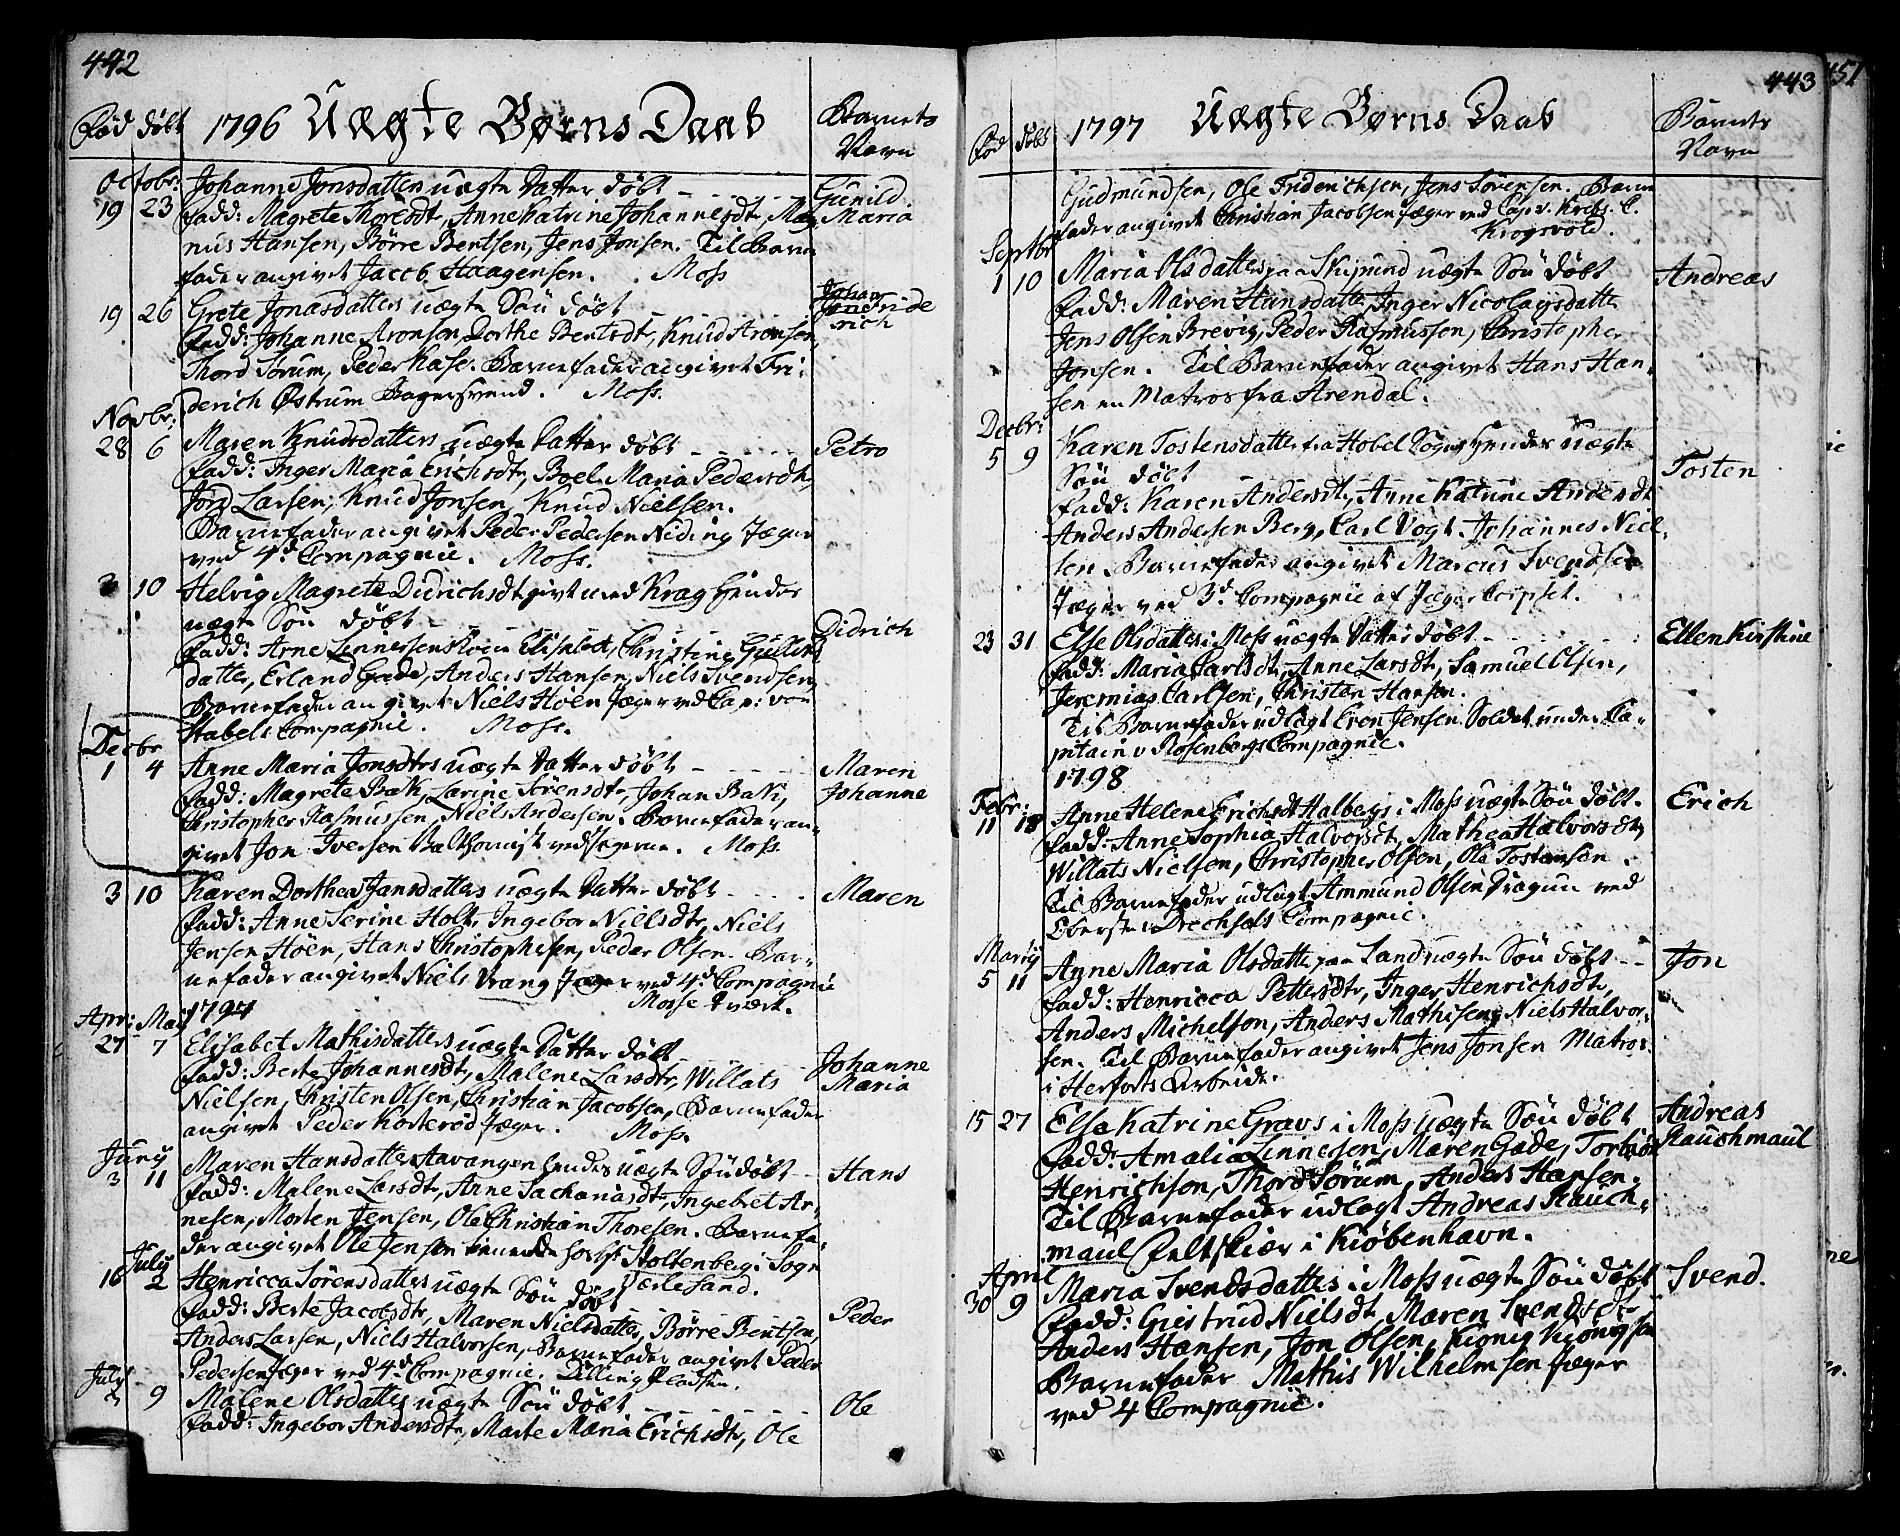 442
Fød døbt 1796 Uægte Børns Daab Barnets Navn
Octobr: Johanne Jonsdatters uægte Datter døbt Gunild
19 23 fadd: Magrete Thoresdt, Anne Katrine Johannesdt, Mag, Maria
nus Hansen, Börre Bentsen, Jens Jonsen. Til Barne
fader angivet Jacob Haagensen. Moss
19 26 Grete Jonasdatters uægte Søn døbt Johan Fride
rich
fadd: Johanne Aronsen, Dorthe Bentsdt, Knud Aronsen,
Thord Sörum, Peder Kase. Barnefader angivet Fri-
derich Østrum Bagersvend. Moss.
Novbr:
28 6 Maren Knudsdatters uægte Datter døbt Petro
fadd: Inger Maria Erichsdt, Boel Maria Pedersdt,
Jörd Larsen, Knud Jonsen, Knud Nielsen.
Barnefader angivet Peder Pedersen Niding Jæger
ved 4d Compagnie. Moss.
3 10 Helvig Magrete Didrichsdt givt med Krag hendes
uægte Søn døbt Didrich
fadd: Arne Linnersen Elisabet, Christine Gullichs
datter, Erland Gade, Anders Hansen, Niels Svendsen,
Barnefader angivet Niels Høen Jæger ved Cap: von
Stabels Compagnie. Moss.
Decbr
1 4 Anne Maria Jonsdtrs uægte Datter døbt Maren
fadd: Magrete Bak, Larine Sörensdt, Johan Bak, Johanne
Christopher Rasmussen, Niels Andersen. Barnefader an-
givet Jon Iversen Valthornist ved Jægerne. Moss.
3 10 Karen Dorthea Jansdatters uægte Datter døbt Maren
fadd: Anne Serine Holt, Ingebor Nielsdtr, Niels
Jensen Höen, Hans Christophersen, Peder Olsen. Bar-
nefader angivet Niels Vrang Jæger ved 4d Compagnie
Mosse Tvært.
1797
Apr: Maij
27 7 Elisabet Mathisdatters uægte Datter døbt Johanne
fadd: Berte Johannesdt, Malene Larsdtr, Willats Maria
Nielsen, Christen Olsen, Christian Jacobsen, Barnefader
angivet Peder Kosterød Jæger. Moss.
Juny
3 11 Maren Hansdatter Stavangen hendes uægte Søn døbt Hans
fadd: Malene Larsdt, Anne Sachariasdt, Ingebret Ar-
nesen, Morten Jensen, Ole Christian Thoresen. Barnefa-
der angivet Ole Jensen tienende hos Hr Holtenberg i Sogn
July
16 2 Henricca Sörensdatters uægte Søn døbt
fadd: Berte Jacobsdtr, Maren Nielsdatter, Börre Bentsen, Peder
Anders Larsen, Niels Halvorsen, Barnefader angivet Peder
Pedersen Jæger ved 4d Compagnie. Dilling Pladsen.
July
2 9 Malene Olsdatters uægte Søn døbt Ole
fadd: Ingebor Andersdtr, Marte Maria Erichsdtr, Ole
443
Fød Döbt 1797 Uægte Børns Daab Barnets Navn
Gudmundsen, Ole Friderichsen, Jens Sörensen. Barne
fader angivet Christian Jacobsen Jæger ved Cap. v. Krebs. C.
Krogsvold.
Septbr
1 10 Maria Olsdatters paa Skipund uægte Søn døbt Andreas
fadd: Maren Hansdatter, Inger Nicolaysdatter
Jens Olsen Brevig, Peder Rasmussen, Christopher
Jonsen. Til Barnefader angivet Hans Han-
sen en Matros fra Arendal.
Decbr:
5 9 Karen Tostensdatter fra Hobel Sogn hendes uægte
Søn døbt Tosten
fadd: Karen Andersdt, Anne Katrine Andersdt
Anders Andersen Berg, Carl Vogt, Johannes Niel-
sen. Barnefader angivet Marcus Svendsen
Jæger ved 3d Compagnie af Jæger Corpset.
23 31 Else Olsdatter i Moss uægte Datter døbt Ellen Kirstine
fadd: Maria Carlsdt, Anne Larsdt, Samuel Olsen,
Jeremias Carlsen, Christen Hansen.
Til Barnefader udlagt Even Jensen Soldat under Ca-
pitain v Rosenbergs Compagnie.
1798
Febr:
11 18 Anne Helene Erichsdt Halbergs i Moss uægte Søn døbt. Erich
fadd: Anne Sophia Halvorsdt, Mathea Halvorsdt,
Willats Nielsen, Christopher Olsen, Ole Tostensen.
Til Barnefader udlagt Ammund Olsen Dragun ved
Oberste Drechsels Compagnie.
Martij
5 11 Anne Maria Olsdatter paa Land uægte Søn døbt Jon
fadd: Henricca Pettersdtr, Inger Henrichsdtr,
Anders Michelson, Anders Mathisen, Niels Halvor-
sen. Til Barnefader angivet Jens Jonsen Matros
i Herfords Arbeide.
15 27 Else Katrine Gravs i Moss uægte Søn døbt Andreas
fadd: Amalia Linnesen, Maren Gade, Torbiörn Rauchmaul
Henrichson, Thord Sörum, Anders Hansen.
Til Barnefader udlagt Andreas Rauch-
maul Feltskiær i Kiöbenhavn.
April
30 9 Maria Svendsdatters i Moss uægte Søn døbt Svend.
fadd: Giertrud Nielsdt, Maren Svendsdt
Anders Hansen, Jon Olsen, Kionig Kionigsen
Barnefader Mathis Wilhelmsen Jæger
ved 4 Compagnie.
451